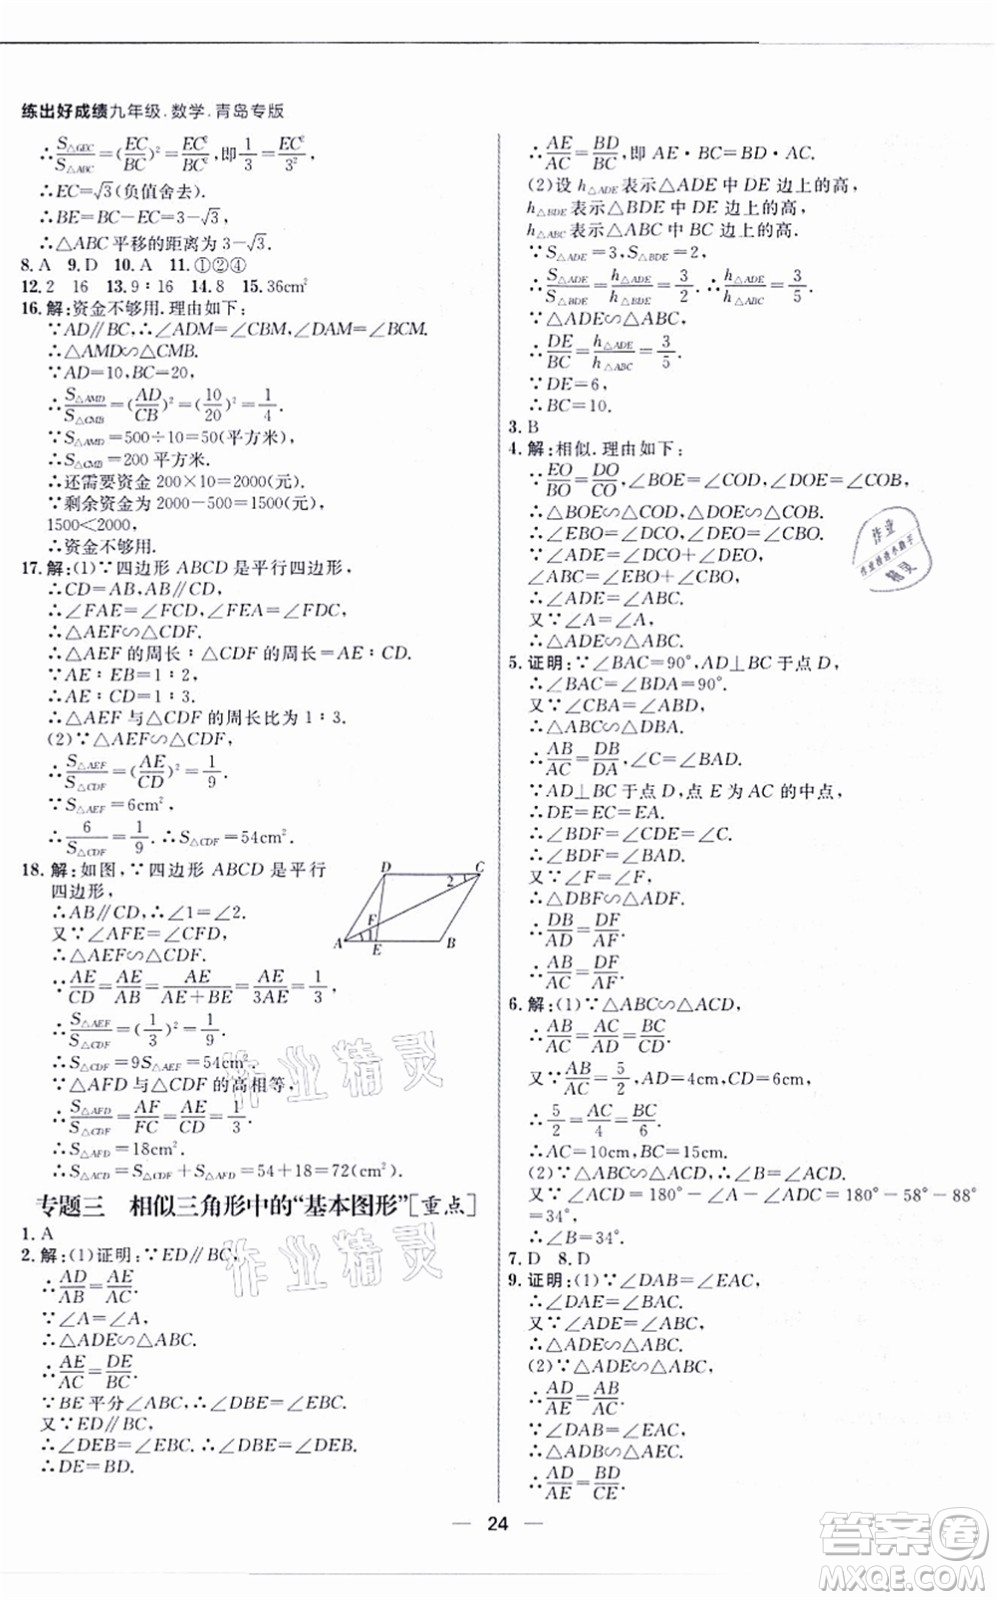 练出好成绩九年级.数学.青岛专版
∴S△GEC/S△ABC=(EC/BC)²=EC²/BC²,即1/3=EC²/3².
∴EC=√3(负值舍去).
∴BE=BC-EC=3-√3.
∴△ABC平移的距离为3-√3.
8.A 9.D 10.A 11.①②④
12.2 16 13.9∶16 14.8 15.36cm²
16.解:资金不够用.理由如下:
∵AD∥BC,∴∠ADM=∠CBM,∠DAM=∠BCM.
∴△AMD∽△CMB.
∵AD=10,BC=20,
∴S△AMD/S△CMB=(AD/CB)²=(10/20)²=1/4.
∵S△AMD=500÷10=50(平方米),
∴S△CMB=200平方米.
∴还需要资金200×10=2000(元).
∵剩余资金为2000-500=1500(元)
1500<2000,
∴资金不够用.
17.解:(1)∵四边形ABCD是平行四边形,
∴CD=AB,AB∥CD.
∴∠FAE=∠FCD,∠FEA=∠FDC.
∴△AEF∽△CDF.
∴△AEF的周长∶△CDF的周长=AE∶CD.
∵AE∶EB=1∶2,
∴AE∶CD=1∶3.
∴△AEF与△CDF的周长比为1∶3.
(2)∵△AEF∽△CDF,
∴S△AEF/S△CDF=(AE/CD)²=1/9.
∵S△AEF=6cm²,
∴6/S△CDF=1/9.∴S△CDF=54cm².
18.解:如图,∵四边形ABCD是平行
四边形,
∴AB∥CD,∴∠1=∠2.
又∵∠AFE=∠CFD,
∴△AEF∽△CDF.
∵AE/CD=AE/AB=AE/(AE+BE)=AE/3AE=1/3,
∴S△AEF/S△CDF=(1/3)²=1/9.
∴S△CDF=9S△AEF=54cm².
∵△AFD与△CDF的高相等,
∴S△AFD/S△CDF=AF/FC=AE/CD=1/3.
∴S△AFD=18cm².
∴S△ACD=S△CDF+S△AFD=54+18=72(cm²).
D C 2 F 1 A E B
专题三 相似三角形中的“基本图形”[重点]
1.A
2.解:(1)证明:∵ED∥BC,
∴AD/AB=AE/AC.
∵∠A=∠A,
∴△ADE∽△ABC.
∴AE/AC=DE/BC.
∵BE平分∠ABC,∴∠DBE=∠EBC.
又∵ED∥BC,
∴∠DEB=∠EBC.∴∠DBE=∠DEB.
∴DE=BD.
∴AE/AC=BD/BC,即AE·BC=BD·AC.
(2)设h△ADE表示△ADE中DE边上的高,
h△BDE表示△BDE中DE边上的高,
h△ABC表示△ABC中BC边上的高.
∵S△ADE=3,S△BDE=2,
∴S△ADE/S△BDE=h△ADE/h△BDE=3/2.∴h△ADE/h△ABC=3/5.
∵△ADE∽△ABC,
∴DE/BC=h△ADE/h△ABC=3/5.
∵DE=6,
∴BC=10.
3.B
4.解:相似.理由如下:
∵EO/BO=DO/CO,∠BOE=∠COD,∠DOE=∠COB,
∴△BOE∽△COD,△DOE∽△COB.
∴∠EBO=∠DCO,∠DEO=∠CBO.
∵∠ADE=∠DCO+∠DEO,
∠ABC=∠EBO+∠CBO,
∴∠ADE=∠ABC.
又∵∠A=∠A,
∴△ADE∽△ABC.
5.证明:∵∠BAC=90°,AD⊥BC于点D,
∴∠BAC=∠BDA=90°.
又∵∠CBA=∠ABD,
∴△CBA∽△DBA.
∴AB/AC=DB/DA,∠C=∠BAD.
∵AD⊥BC于点D,点E为AC的中点,
∴DE=EC=EA.
∴∠BDF=∠CDE=∠C.
∴∠BDF=∠BAD.
又∵∠F=∠F,
∴△DBF∽△ADF.
∴DB/AD=DF/AF.
∴AB/AC=DF/AF.
6.解:(1)∵△ABC∽△ACD,
∴AB/AC=AC/AD=BC/CD.
又∵AB/AC=5/2,AD=4cm,CD=6cm,
∴5/2=AC/4=BC/6.
∴AC=10cm,BC=15cm.
(2)∵△ABC∽△ACD,∴∠B=∠ACD.
又∵∠ACD=180°-∠A-∠ADC=180°-58°-88°
=34°,
∴∠B=34°.
7.D 8.D
9.证明:(1)∵∠DAB=∠EAC,
∴∠DAE=∠BAC.
又∵∠ADE=∠ABC,
∴△ADE∽△ABC.
(2)∵△ADE∽△ABC,
∴AD/AE=AB/AC.
又∵∠DAB=∠EAC,
∴△ADB∽△AEC.
∴AD/AE=BD/CE.
24
作业精灵
作业精灵
答案卷
MXQE.COM